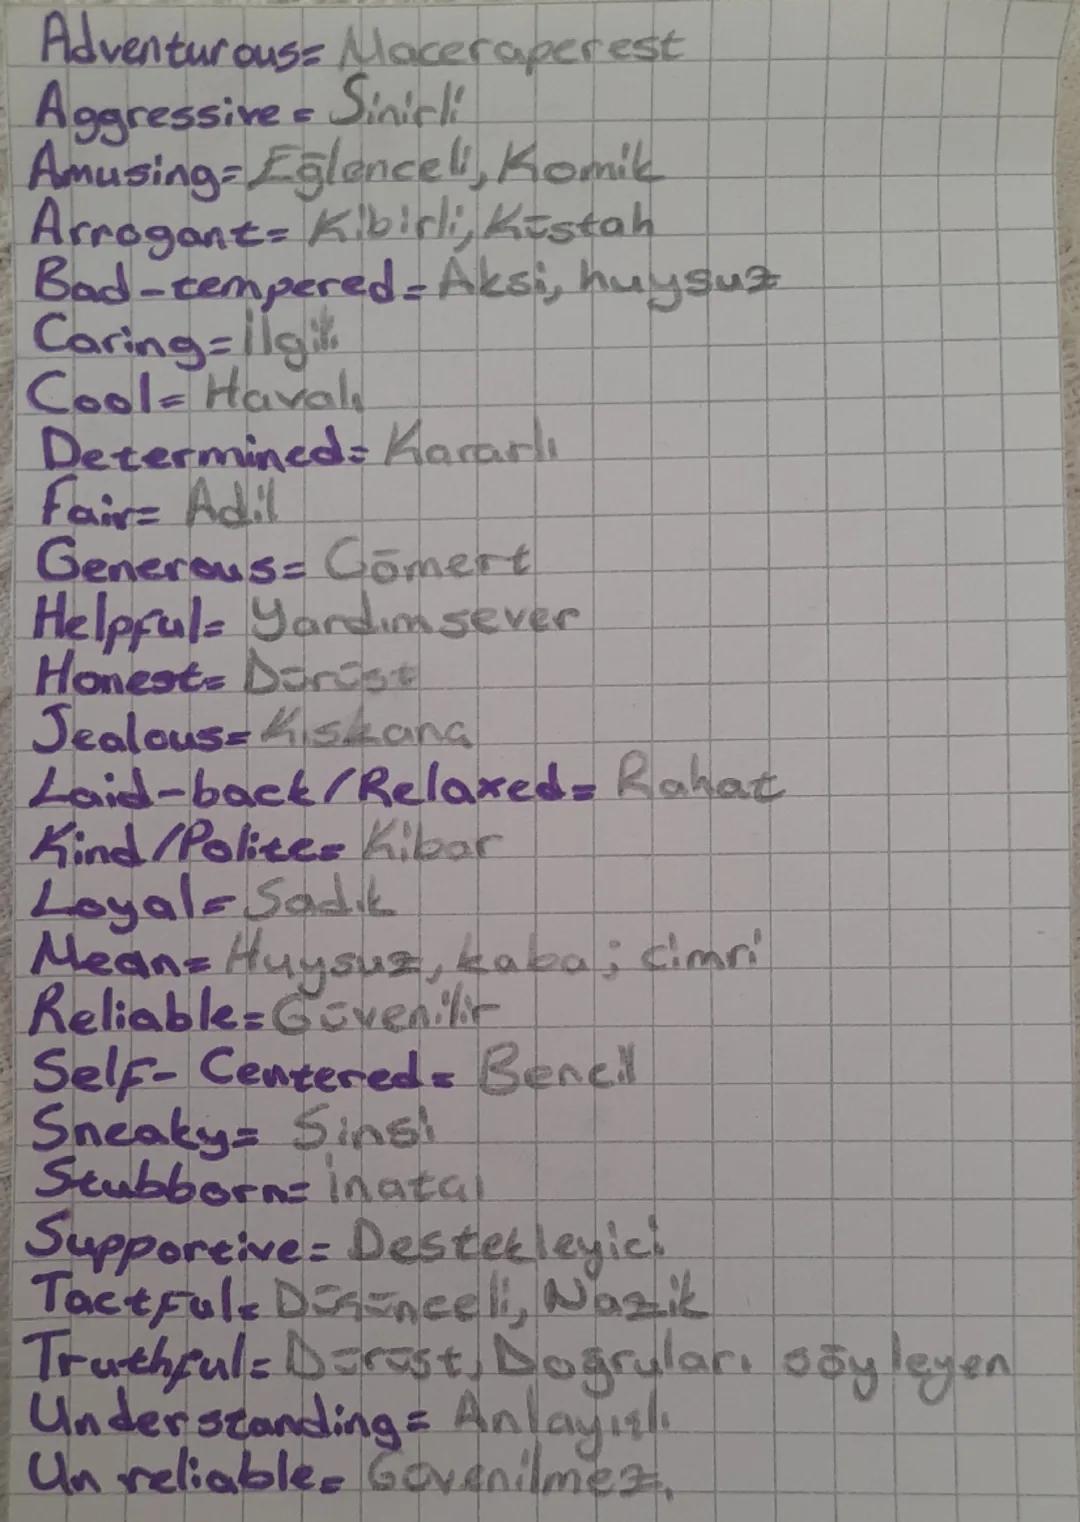 Adventurous= Maceraperest
Aggressive = Sinirli
Amusing= Eğlenceli, Komik
Arrogant= Kibirli, Küstah
Bad-tempered= Aksi, huysuz
Caring= İlgili
Cool= Havalı
Determined= Kararlı
Fair= Adil
Generous= Cömert
Helpful= Yardımsever
Honest= Dürüst
Jealous= Kıskanç
Laid-back/Relaxed= Rahat
Kind/Polite= Kibar
Loyal= Sadık
Mean= Huysuz, kaba; cimri
Reliable= Güvenilir
Self- Centered= Bencil
Sneaky= Sinsi
Stubborn= İnatçı
Supportive= Destekleyici
Tactful= Düşünceli, Nazik
Truthful= Dürüst, Doğruları söyleyen
Understanding= Anlayışlı
Un reliable= Güvenilmez.